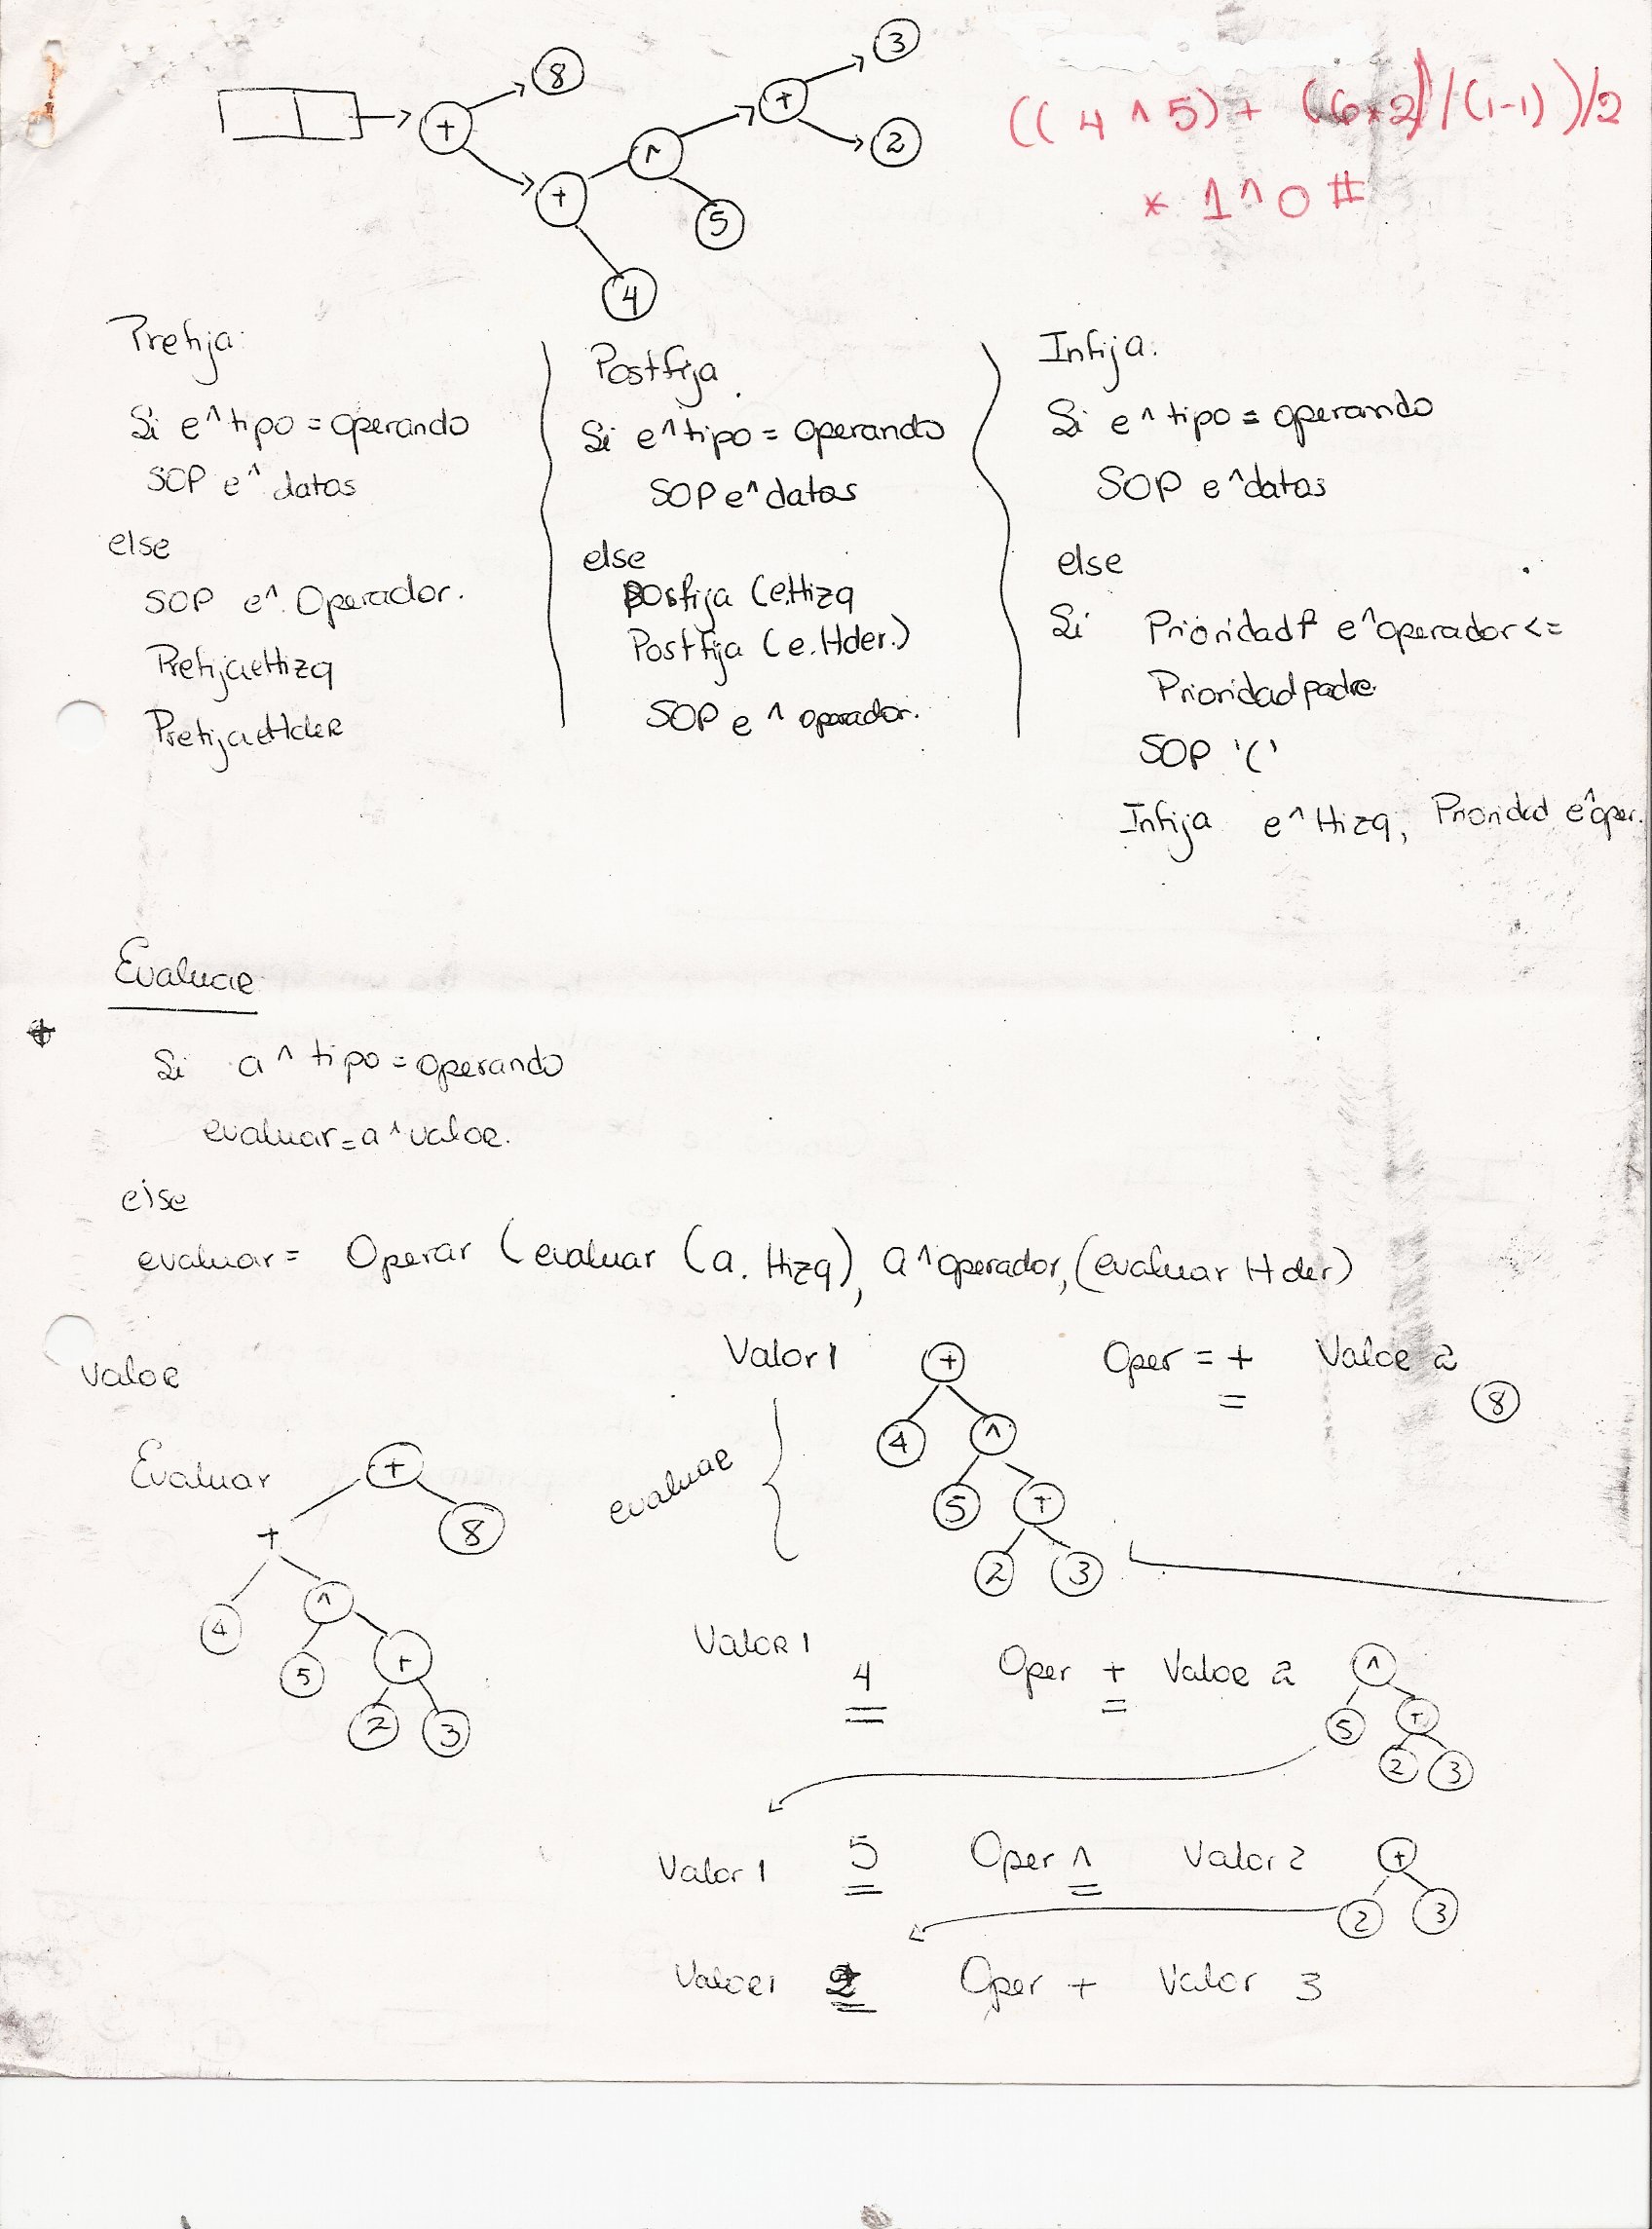 8
3
+
+
^
2
+
5
4
((4 ^ 5) + (6*2)/(1-1))/2
* 1 ^ 0 #
Prefija:
Si e^tipo = operando
SOP e^ datos
else
SOP e^. Operador.
Prefija e Hizq
Prefija e Hder
Postfija.
Si e^tipo = operando
SOP e^datos
else
Postfija (e.Hizq
Postfija (e.Hder.)
SOP e ^ operador.
Infija.
Si e^tipo = operando
SOP e^datos
else
Si e^operador <=
Prioridad padre
SOP '('
Infija e^Hizq, Prioridad e^oper.
Evaluar
Si a^tipo = operando
evaluar = a^valor.
else
evaluar = Operar (evaluar (a. Hizq), a^operador, (evaluar Hder)
Valor 1 + Oper = + Valor 2
8
4 ^
5 +
2 3
evaluar
Valor
Evaluar +
+ 8
4 ^
5 +
2 3
Valor 1 4 Oper + Valor 2 ^
5 +
2 3
Valor 1 5 Oper ^ Valor 2 +
2 3
Valor 1 2 Oper + Valor 3